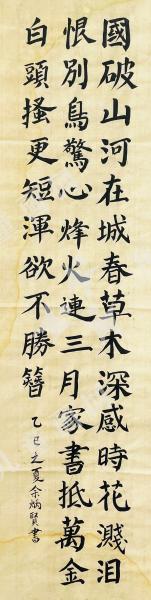 國破山河在城春草木深感時花濺泪
恨別鳥驚心烽火連三月家書抵萬金
白頭搔更短渾欲不勝簪
乙巳之夏余炳賢書